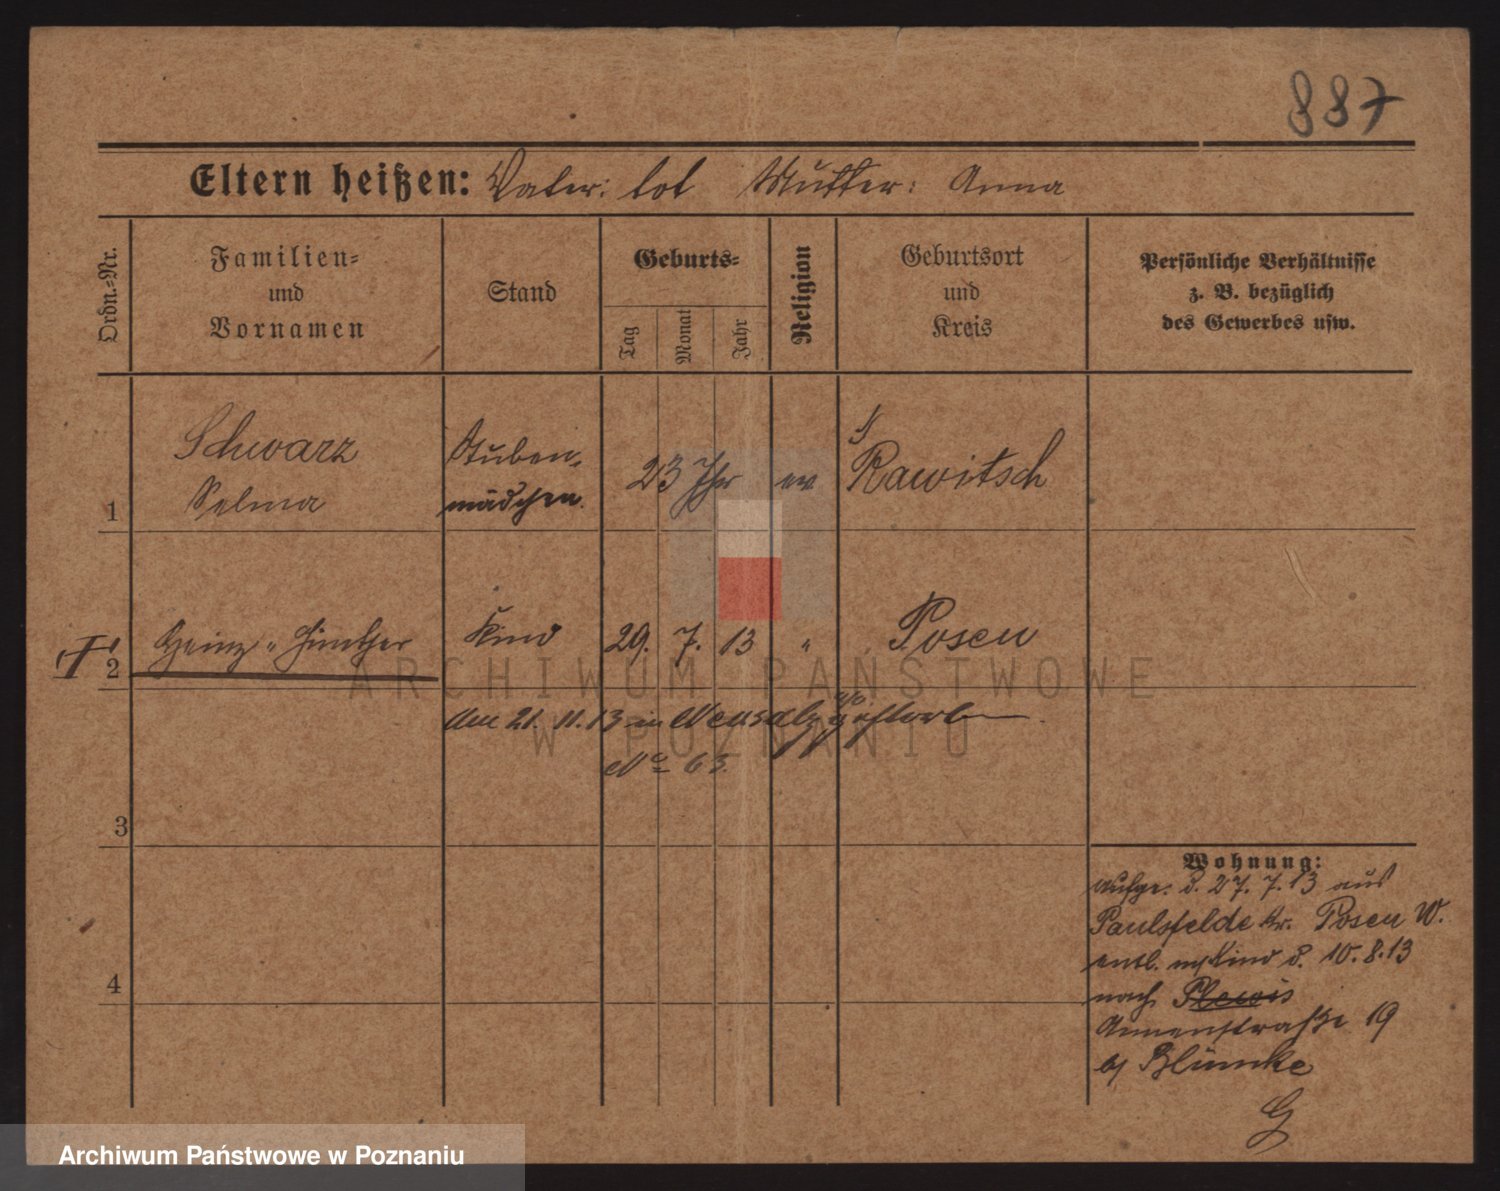 887
Eltern heißen: Vater: tot Mutter: Anna
Ordn.-Nr.
Familien-
und
Vornamen
Stand
Geburts-
Tag
Monat
Jahr
Religion
Geburtsort
und
Kreis
Persönliche Verhältnisse
z. B. bezüglich
des Gewerbes usw.
Schwarz
Selma
Stuben-
mädchen.
23 Jhr
ev
Rawitsch
1
Heinz - Günther
Kind
29. 7. 13
"
Posen
2
Am 21. 11. 13 in Neusalz a/o gestorben
No 63.
3
4
Wohnung:
aufge. d. 27. 7. 13 aus
Paulsfelde Kr. Posen W.
entl. m/Kind d. 10. 8. 13
nach Plewis
Annenstraße 19
b/ Blümke
G
ARCHIWUM PAŃSTWOWE
W POZNANIU
Archiwum Państwowe w Poznaniu